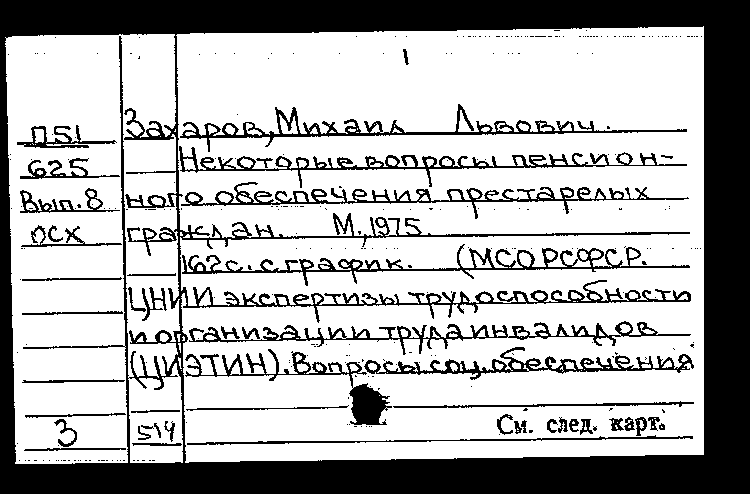 1
П51 Захаров, Михаил Львович.
625 Некоторые вопросы пенсион-
Вып. 8 ного обеспечения престарелых
ОСХ граждан. М., 1975.
162с. с график. (МСО РСФСР.
ЦНИИ экспертизы трудоспособности
и организации труда инвалидов
(ЦИЭТИН). Вопросы соц. обеспечения
3 514 См. след. карт.